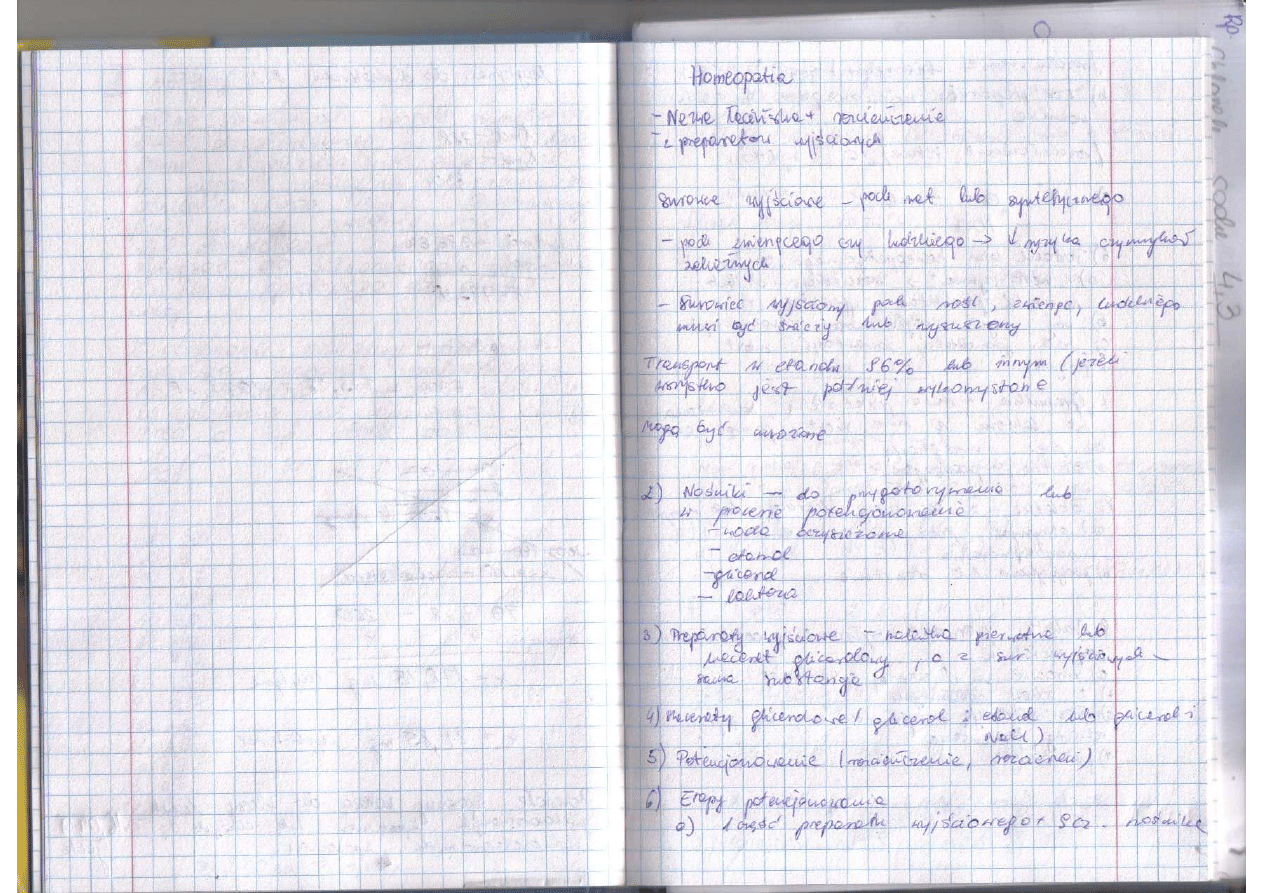 Homeopatia
- Nazwa łacińska + rozcieńczenie
- z preparatów wyjściowych
Surowce wyjściowe - poch nat lub syntetycznego
- poch zwierzęcego czy ludzkiego → ↓ ryzyka czynników
zakaźnych
- Surowiec wyjściowy poch rośl, zwierzęc, ludzkiego
musi być świeży lub wysuszony
Transport w etanolu 96% lub innym (jeżeli
wszystko jest później wykorzystane
Mogą być mrożone
2) Nośniki - do przygotowywania lub
w procesie potencjonowania
- woda oczyszczona
- etanol
- glicerol
- laktoza
3) Preparaty wyjściowe - nalewka pierwotna lub
macerat glicerolowy, a z sur wyjściowych -
sama substancja
4) Maceraty glicerolowe / glicerol i etanol lub glicerol i
NaCl)
5) Potencjonowanie (rozcieńczenie, rozcieran)
6) Etapy potencjonowania
a) 1 część preparatu wyjściowego + 9 cz. nośnika
Rp
codw 4,3